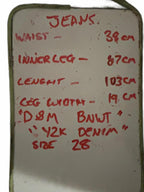 JEANS.
WAIST - 38 cm
INNER LEG - 87 cm
LENGHT - 103 cm
LEG WIDTH - 19 cm
"D&M BNWT"
"Y2K DENIM"
SIZE 28